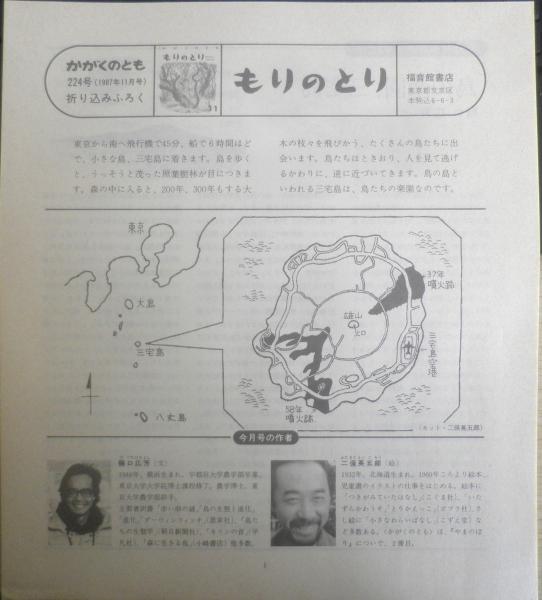 かがくのとも
224号(1987年11月号)
折り込みふろく
もりのとり
11
もりのとり
福音館書店
東京都文京区
本駒込6-6-3
東京から南へ飛行機で45分、船で6時間ほど
で、小さな島、三宅島に着きます。島を歩く
と、うっそうと茂った照葉樹林が目につきま
す。森の中に入ると、200年、300年もする大
木の枝々を飛びかう、たくさんの鳥たちに出
会います。鳥たちはときおり、人を見て逃げ
るかわりに、逆に近づいてきます。鳥の島と
いわれる三宅島は、鳥たちの楽園なのです。
東京
大島
三宅島
八丈島
37年
噴火跡
雄山
火口
三宅島空港
58年
噴火跡
(カット・二俣英五郎)
今月号の作者
樋口広芳(文)
1948年、横浜生まれ。宇都宮大学農学部卒業。
東京大学大学院博士課程修了。農学博士。東
京大学農学部助手。
二俣英五郎(絵)
1932年、北海道生まれ。1960年ころより絵本、
児童書のイラストの仕事をはじめる。絵本に
など多数ある。〈かがくのとも〉は、『やまのぼ
り』について、2冊目。
1